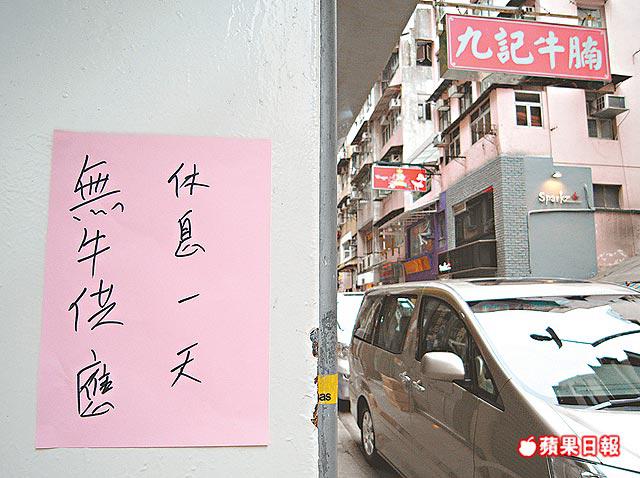 休息一天
無牛供應
九記牛腩
蘋果日報